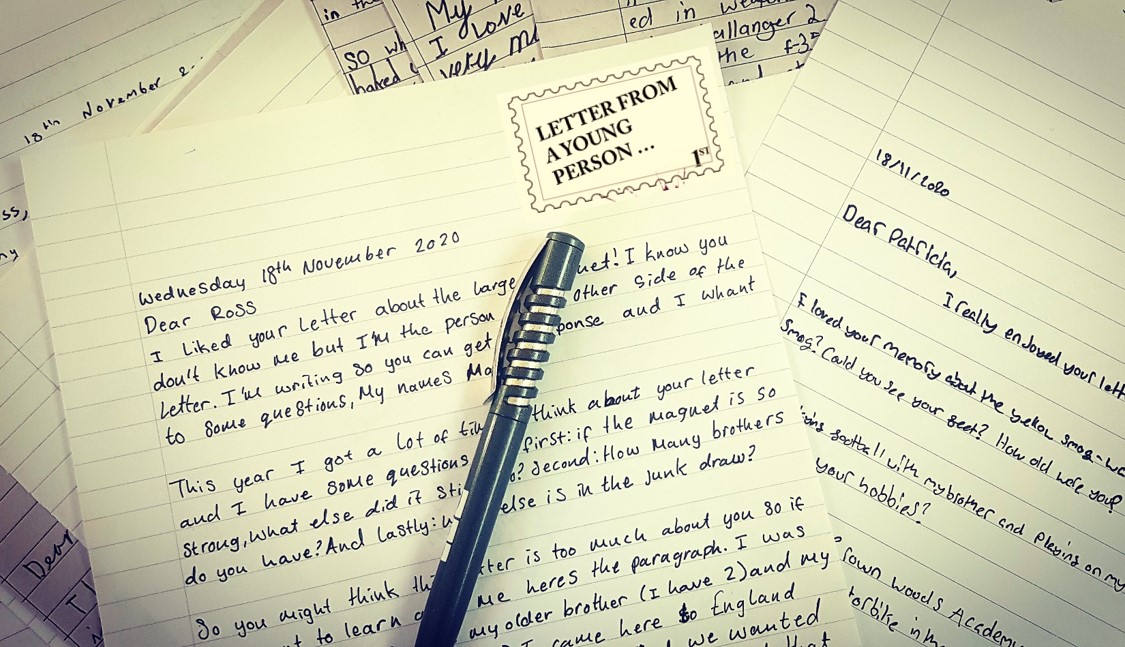 in the
so wh
baked
My
I love
very
ed in
allanger 2
the f-35
18th November 2
ss,
LETTER FROM
A YOUNG
PERSON ...
1ST
Wednesday 18th November 2020
Dear Ross
I Liked your Letter about the large net! I know you
don't know me but I'm the person other side of the
Letter. I'm writing so you can get ponse and I whant
to some questions, My names Ma
This year I got a lot of ti think about your letter
and I have some questions first: if the magnet is so
strong, what else did it sti o? Second: How many brothers
do you have? And lastly: w else is in the junk draw?
So you might think thi tter is too much about you so if
t to learn me heres the paragraph. I was
my older brother (I have 2) and my
I came here to England
d we wanted
that
18/11/2020
Dear Patricia,
I really enjoyed your lett
I loved your memory about the yellow smog-wa
Smog? Could you see your feet? How old were you?
ing football with my brother and playing on my
your hobbies?
Town Woods Academy
torbike in m
Dear